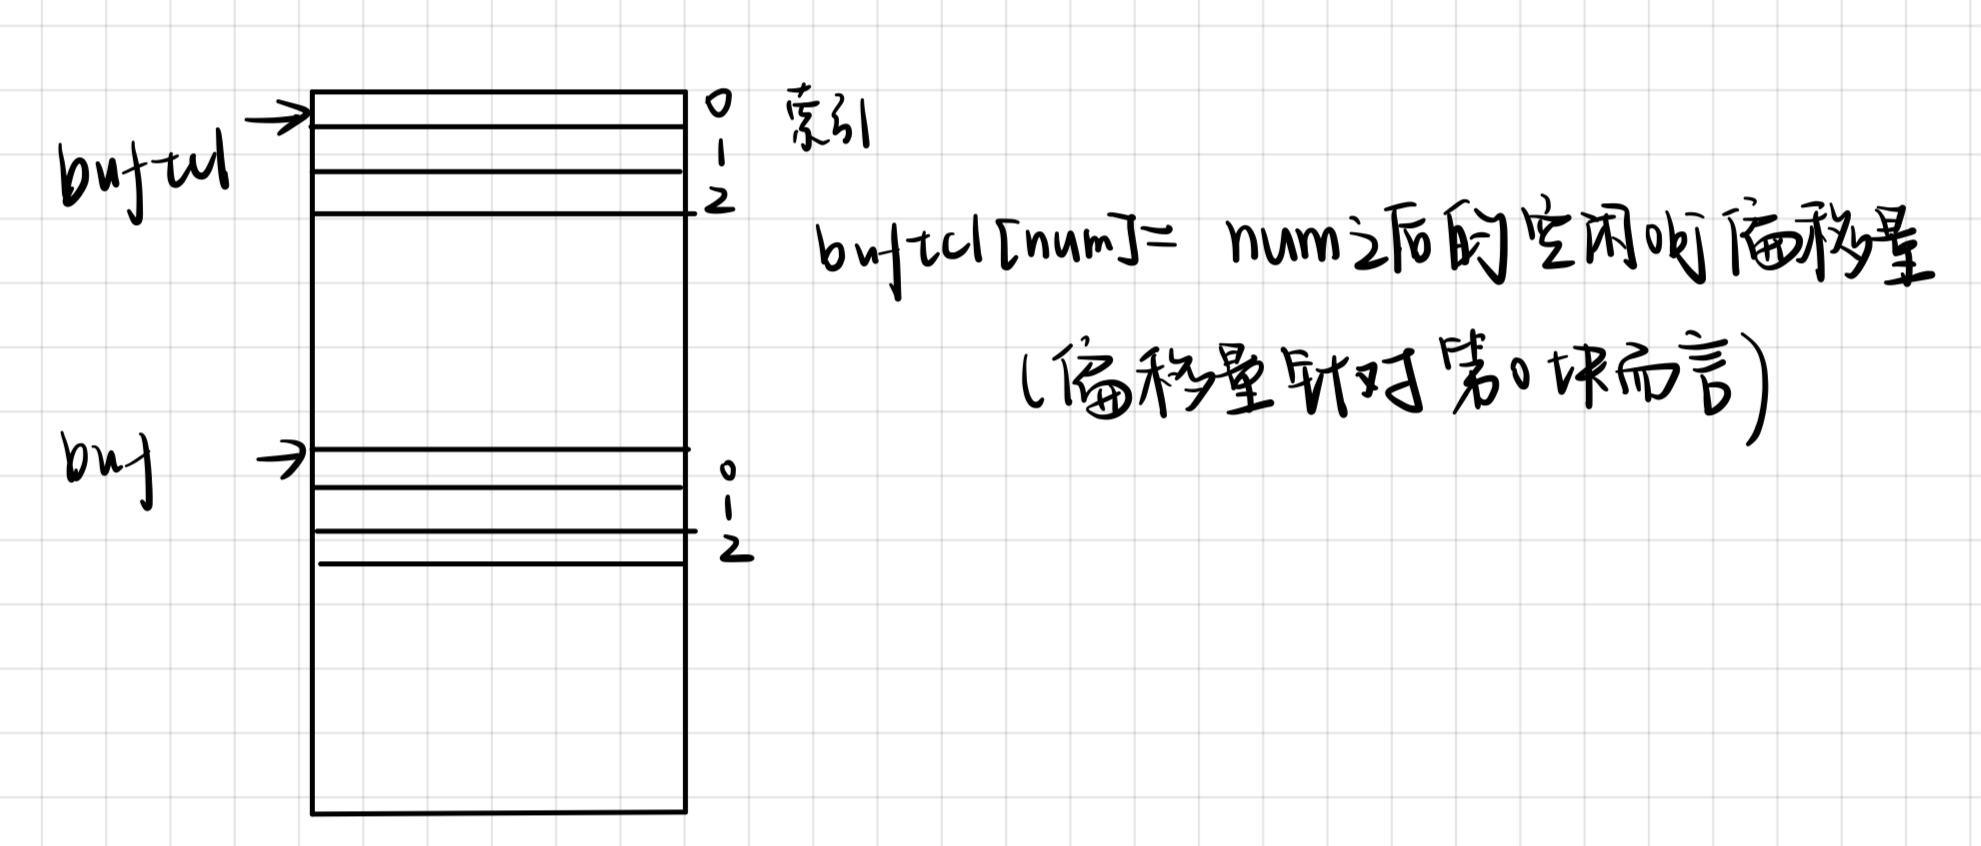 bufctl
0
索引
1
2
bufctl[num]= num之后的空闲obj偏移量
(偏移量针对第0块而言)
buf
0
1
2